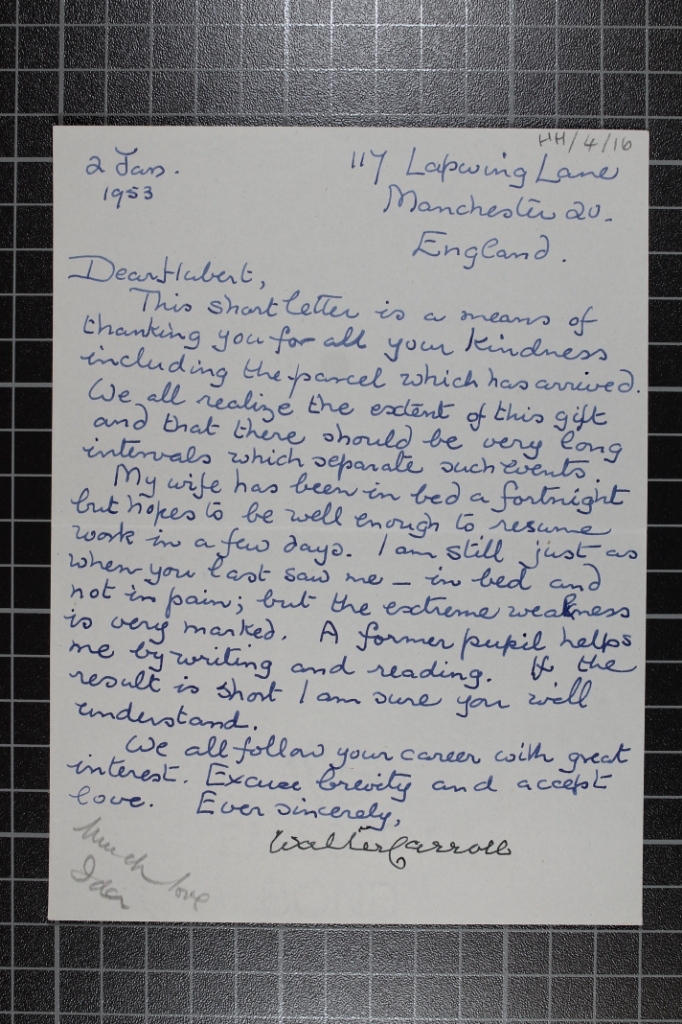 HH/4/16
2 Jan.
1953
117 Lapwing Lane
Manchester 20.
England.
Dear Hubert,
This short letter is a means of
thanking you for all your kindness
including the parcel which has arrived.
We all realize the extent of this gift
and that there should be very long
intervals which separate such events.
My wife has been in bed a fortnight
but hopes to be well enough to resume
work in a few days. I am still just as
when you last saw me – in bed and
not in pain; but the extreme weakness
is very marked. A former pupil helps
me by writing and reading. If the
result is short I am sure you will
understand.
We all follow your career with great
interest. Excuse brevity and accept
love. Ever sincerely,
Walter Carroll
Much love
Ida